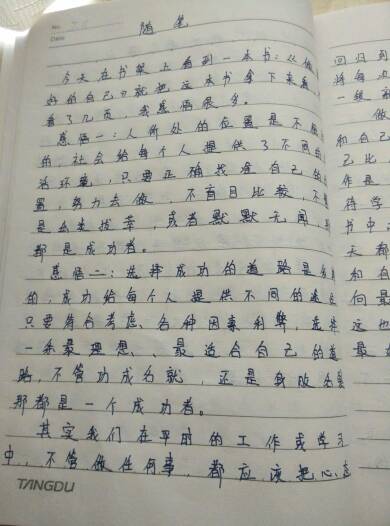 No.
Date
随笔
今天在书架上看到一本书:从做
好的自己,就把这本书拿下来看,
看了几页,我感悟很多。
感悟一:人所处的位置是不
的,社会给每个人提供了不同的
活环境,只要正确找准自己的
置,努力去做,不盲目比较,不
是出类拔萃,或者默默无闻,
都是成功者。
感悟二:选择成功的道路是
的,成功给每个人提供不同的途
只要综合考虑、各种因素利弊,选择
一条最理想、最适合自己的道
路,不管功成名就,还是身败名
那都是一个成功者。
其实我们在平时的工作或学习
中,不管做任何事,都应该把心态
TANGDU
回归到
将每次
一级
做
和自己
己比
作是
待学
书中
天都
和自
何最
这也
最